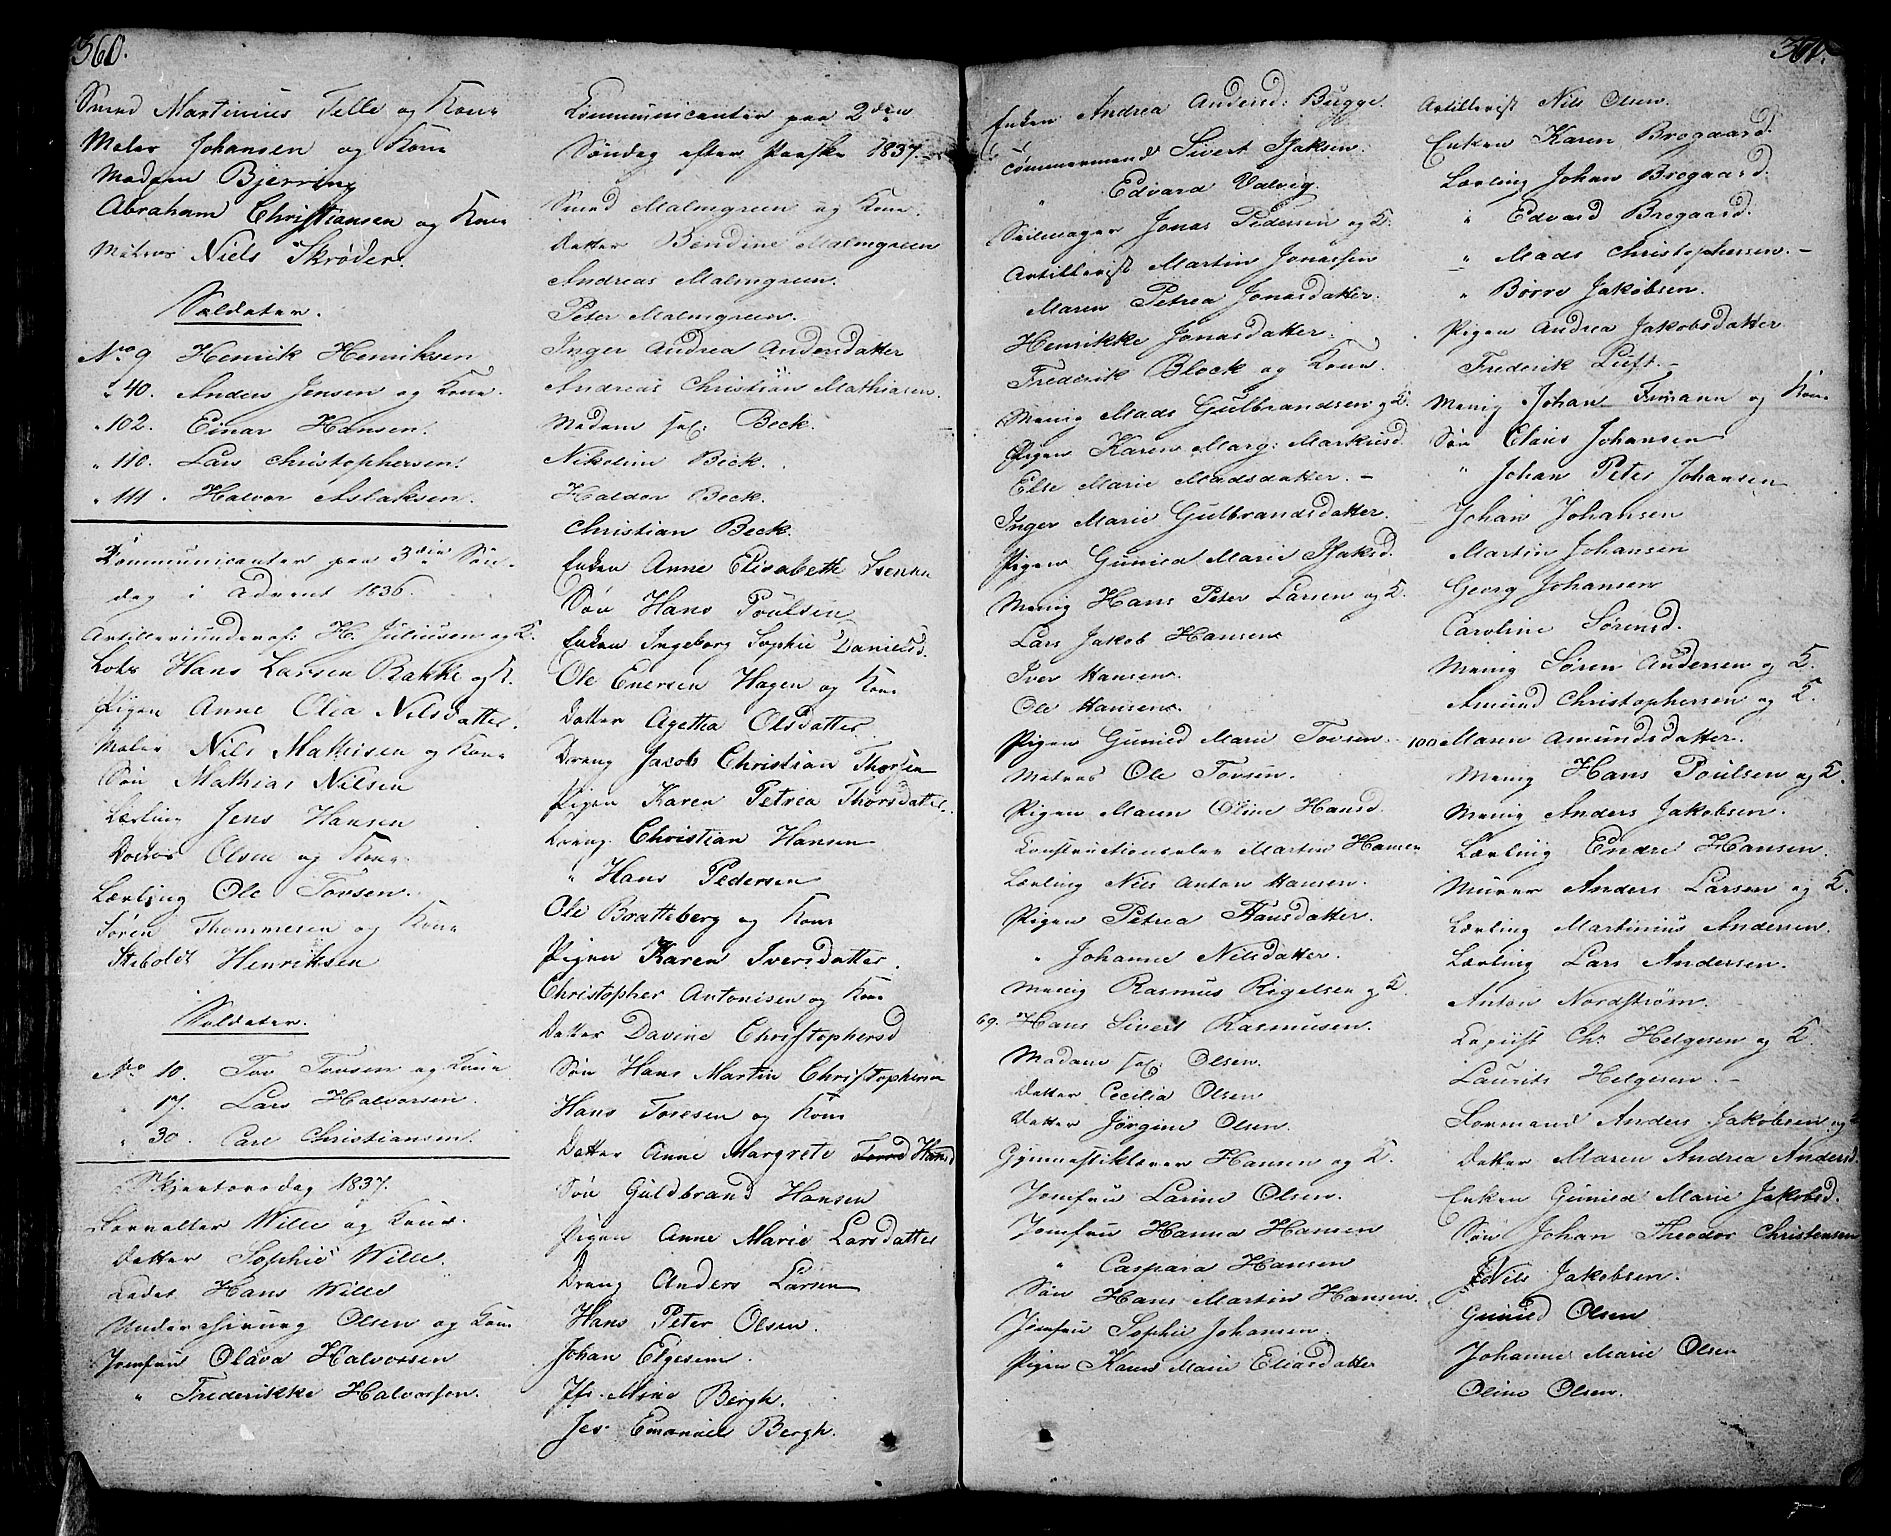 360.
Smed Martinius Telle og Kone
Maler Johansen og Kone
Madam Bjerring
Abraham Christiansen og Kone
Matros Niels Skrøder.
Soldater.
No 9 Henrik Henriksen
" 40. Anders Jensen og Kone.
" 102. Einar Hansen.
" 110. Lars Christophersen.
" 111. Halvor Aslaksen.
Communicanter paa 3die Søn-
dag i Advent 1836.
Artilleriunderof: H. Juliusen og K.
Lods Hans Larsen Bakke og K.
Pigen Anne Olea Nilsdatter.
Maler Nils Mathisen og Kone
Søn Mathias Nilsen
Lærling Jens Hansen
Olsen og Kone
Lærling Ole Tovsen.
Søren Thommesen og Kone
Henriksen
Soldater.
No 10. Tov Tovsen og Kone
" 17. Lars Halvorsen.
" 30. Carl Christiansen.
Skjertorsdag 1837.
Forvalter Wille og Kone.
Datter Sophie Wille.
Cadet Hans Wille
Underchirurg Olsen og Kone
Jomfru Olava Halvorsen
" Frederikke Halvorsen.
Communicanter paa 2den
Søndag efter Paaske 1837.
Smed Malmgreen og Kone.
Datter Bendine Malmgreen
Andreas Malmgreen.
Peter Malmgreen.
Inger Andrea Andersdatter
Andreas Christian Mathiasen.
Madam sal: Beck.
Nikoline Beck.
Haldor Beck.
Christian Beck.
Enken Anne Elisabeth
Søn Hans Poulsen
Enken Ingeborg Sophie Danielsd.
Ole Enersen Hagen og Kone
Datter Agetha Olsdatter.
Dreng Jacob Christian Thorsen
Pigen Karen Petrea Thorsdatter.
Dreng Christian Hansen
" Hans Pedersen
Ole Bratteberg og Kone
Pigen Karen Iversdatter.
Christopher Antonisen og Kone
Datter Davine Christophersd
Søn Hans Martin Christophersen
Hans Toresen og Kone
Datter Anne Margrete Hansd
Søn Guldbrand Hansen
Pigen Anne Marie Larsdatter
Dreng Anders Larsen
Hans Peter Olsen.
Johan Elgesem.
Jfr. Mine Bergh.
Emanuel Bergh.
361.
Enken Andrea Andersd: Bugge.
Tømmermand Sivert Isaksen.
" Edvard Valvig.
Seilmager Jonas Pedersen og K.
Artillerist Martin Jonassen
Maren Petrea Jonasdatter.
Henrikke Jonasdatter.
Frederik Block og Kone.
Menig Mads Gulbrandsen og K.
Pigen Karen Marg: Markusd.
Else Marie Madsdatter. -
Inger Marie Gulbrandsdatter.
Pigen Gunild Marie Isaksd.
Menig Hans Peter Larsen og K.
Lars Jakob Hansen
Iver Hansen.
Ole Hansen.
Pigen Gunild Marie Tovsen.
Matros Ole Tovsen.
Pigen Maren Oline Hansd.
Constructionselev Martin Hansen
Lærling Nils Anton Hansen.
Pigen Petrea Hansdatter.
" Johanne Nilsdatter.
Menig Rasmus Rigelsen og K.
69. Hans Sivert Rasmusen.
Madame sal: Olsen.
Datter Cecilia Olsen
Datter Jørgine Olsen.
Gymnastiklærer Hansen og K.
Jomfru Larine Olsen.
Jomfru Hanna Hansen
" Caspara Hansen
Søn Hans Martin Hansen.
Jomfru Sophie Johansen.
Pigen Karen Marie Eliasdatter
Artillerist Nils Olsen.
Enken Karen Brogaard.
Lærling Johan Brogaard.
" Edvard Brogaard.
" Mads Christophersen. -
" Børre Jakobsen.
Pigen Andrea Jakobsdatter
Frederik Luft. -
Menig Johan og Kone
Søn Claus Johansen
" Johan Peter Johansen
Johan Johansen
Martin Johansen
Georg Johansen
Caroline Sørensd.
Menig Søren Andersen og K.
Amund Christophersen og K.
100 Maren Amundsdatter.
Menig Hans Poulsen og K.
Menig Anders Jakobsen.
Lærling Endre Hansen.
Murer Anders Larsen og K.
Lærling Martinius Andersen.
Lærling Lars Andersen.
Anton Nordstrøm.
Copiist Chr Helgesen og K
Laurits Helgesen. -
Formand Anders Jakobsen og K
Datter Maren Andrea Andersd.
Enken Gunild Marie Jakobsd.
Søn Johan Theodor Christensen
Nils Jakobsen.
Gunild Olsen
Johanne Marie Olsen
Oline Olsen.